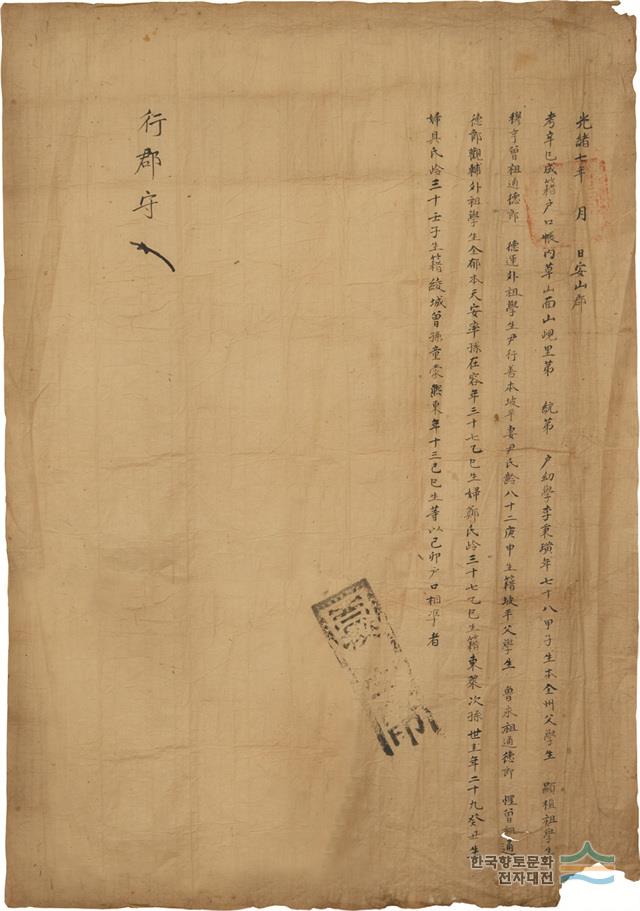 光緒七年 月 日安山郡
考辛巳成籍户口帳內草山面山峴里第 統第 户幼學李秉璜年七十八甲子生本全州父學生 顯植祖學生
穆亨曾祖通德郎 德運外祖學生尹行善本坡平妻尹氏齡八十二庚申生籍坡平父學生 魯永祖通德郎 惺曾祖通
德郎觀輔外祖學生全郁本天安率孫在容年三十七乙巳生婦鄭氏齡三十七乙巳生籍東萊次孫世圭年二十九癸丑生
婦具氏齡三十壬子生籍綾城曾孫童蒙熙東年十三己巳生等以己卯户口相準者
行郡守
한국향토문화
전자대전